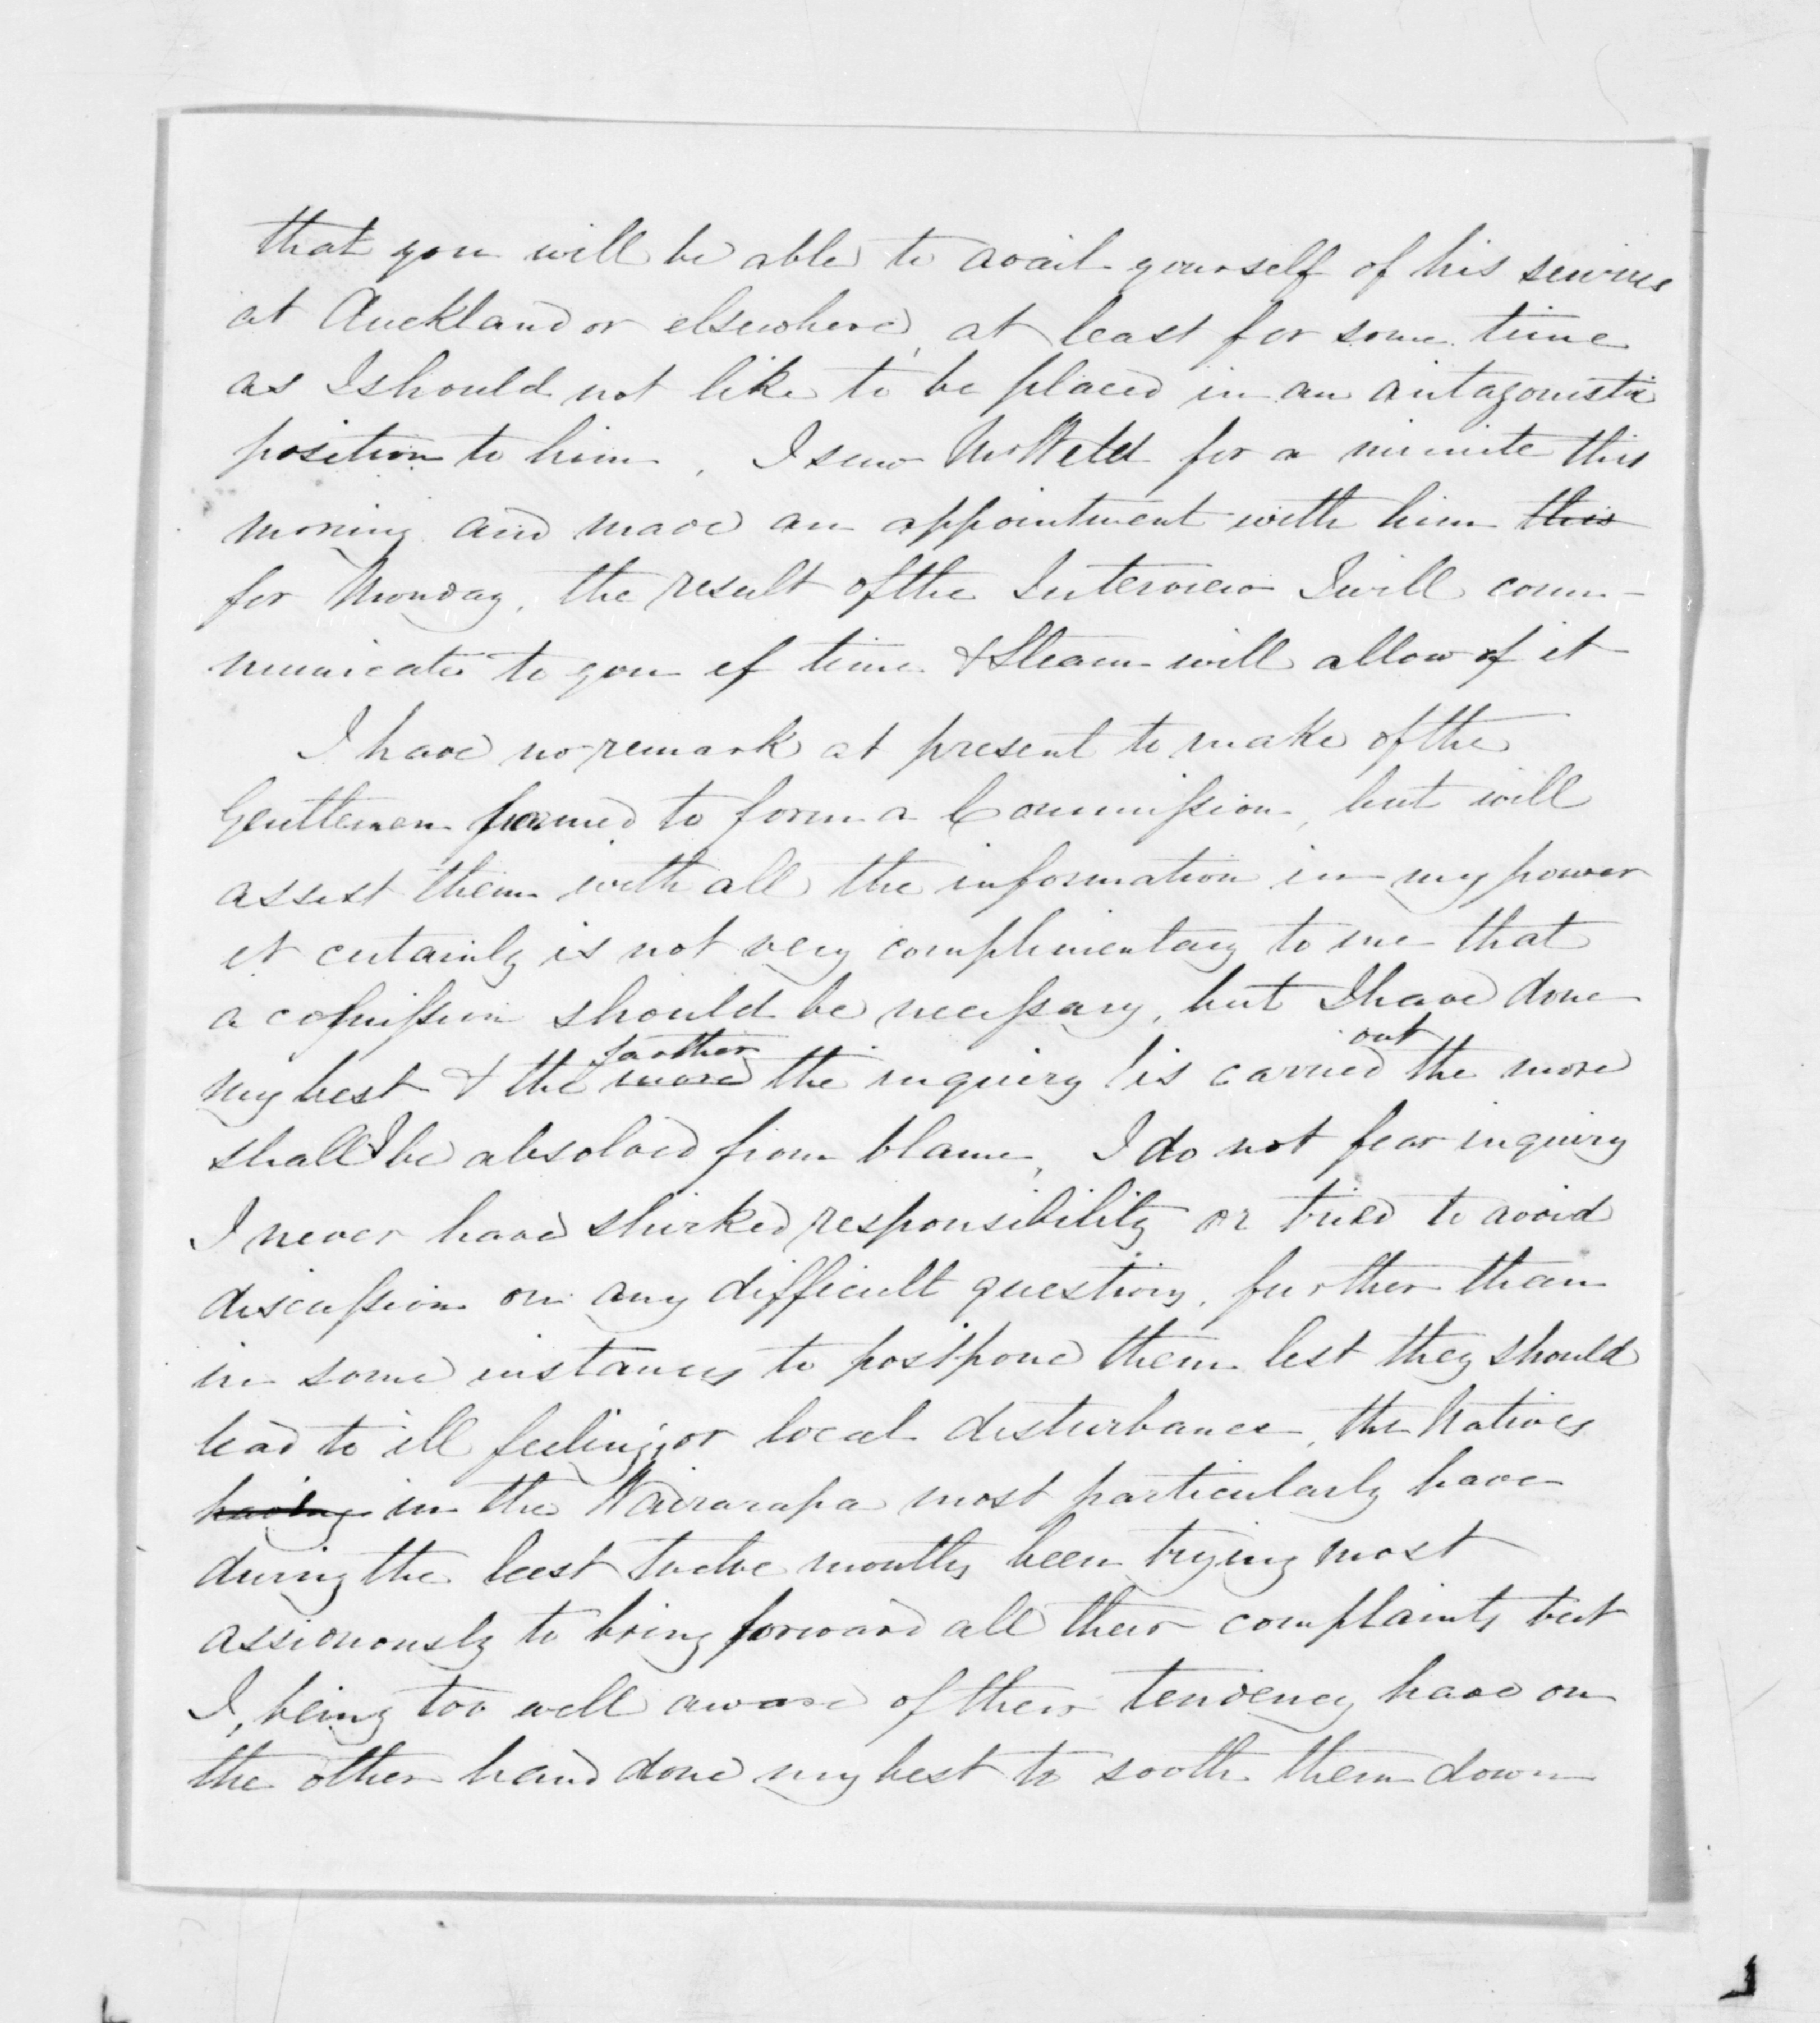 that you will be able to avail yourself of his services
at Auckland or elsewhere, at least for some time
as I should not like to be placed in an antagonistic
position to him. I saw Mr Weld for a minute this
morning and made an appointment with him this
for Monday, the result of the Interview I will com-
municate to you if time & Steam will allow of it
I have no remark at present to make of the
Gentlemen to form a Commission, but will
assist them with all the information in my power
it certainly is not very complimentary to me that
a commission should be necessary, but I have done
farther out
my best & the more the inquiry is carried the more
shall I be absolved from blame, I do not fear inquiry
I never have shirked responsibility or tried to avoid
discussion on any difficult question, further than
in some instances to postpone them lest they should
lead to ill feeling, or local disturbance, the Natives
having in the Wairarapa most particularly have
during the last twelve months been trying most
assiduously to bring forward all their complaints but
I, being too well aware of their tendency have on
the other hand done my best to sooth them down